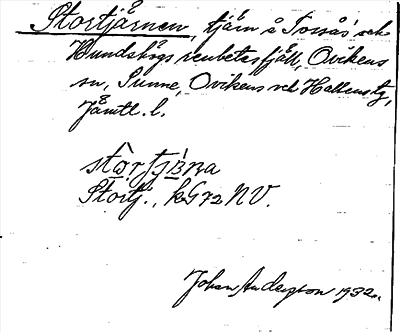 Stortjärnen, tjärn å Torsås' och
Hundshögs renbetesfjäll, Ovikens
sn, Sunne, Ovikens och Hallens tg,
Jämtl. l.
Stortj., kG72NV.
Johan Anderzson 1932.